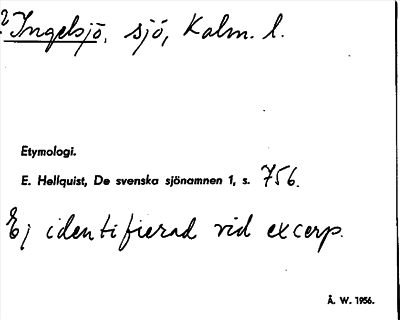 ? Ingelsjö, sjö, Kalm. l.
Etymologi.
E. Hellquist, De svenska sjönamnen 1, s. 756.
Ej identifierad vid excerp.
Å. W. 1956.